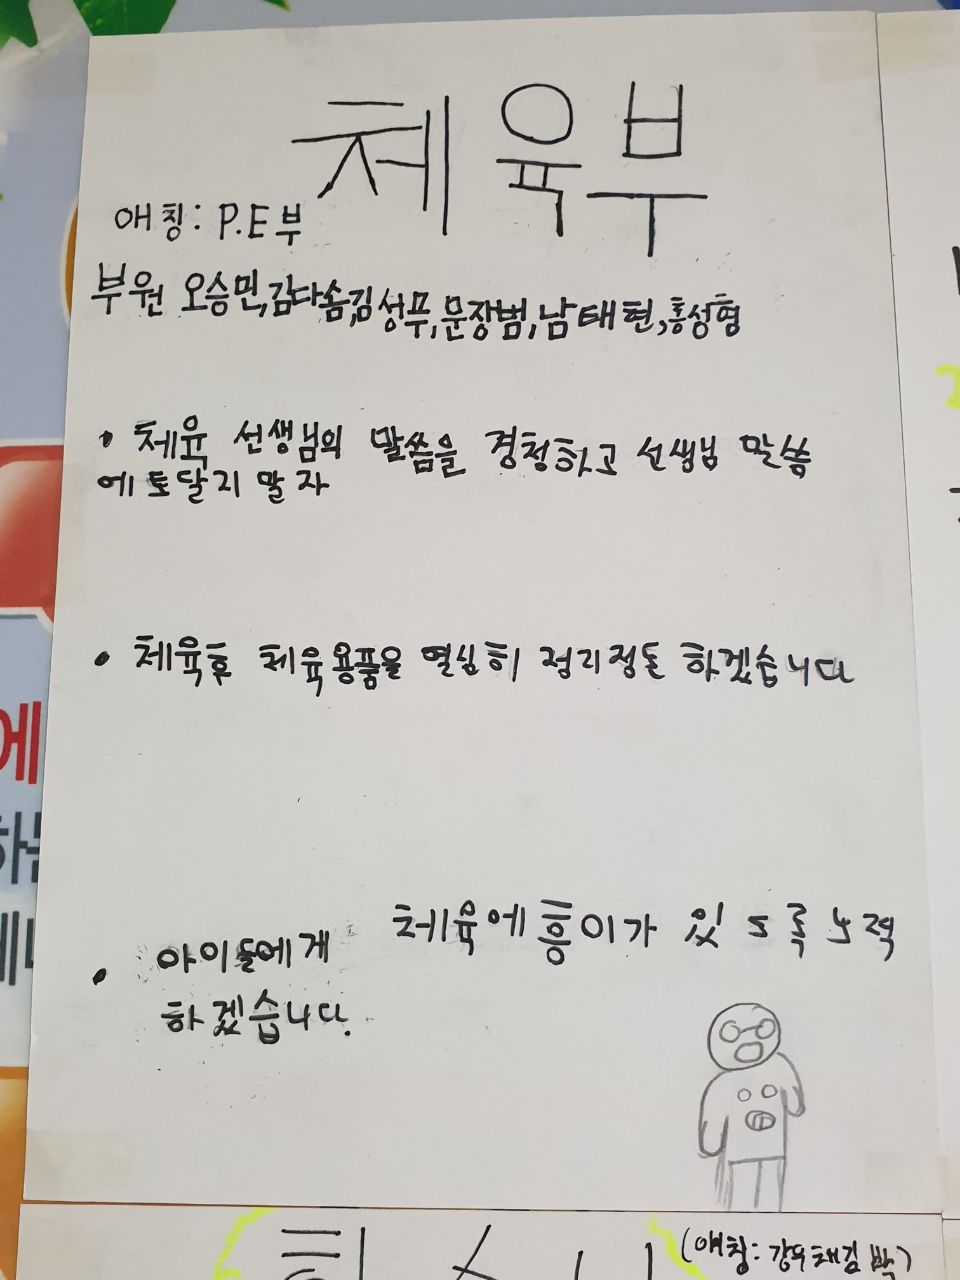 체육부
애칭: P.E부
부원 오승민,김다솜,김성무,문장범,남태현,홍성형
• 체육 선생님의 말씀을 경청하고 선생님 말씀
에 토달지 말자
• 체육후 체육용품을 열심히 정리정돈 하겠습니다
• 아이들에게 체육에 흥이가 있도록 노력
하겠습니다.
에
(애칭: